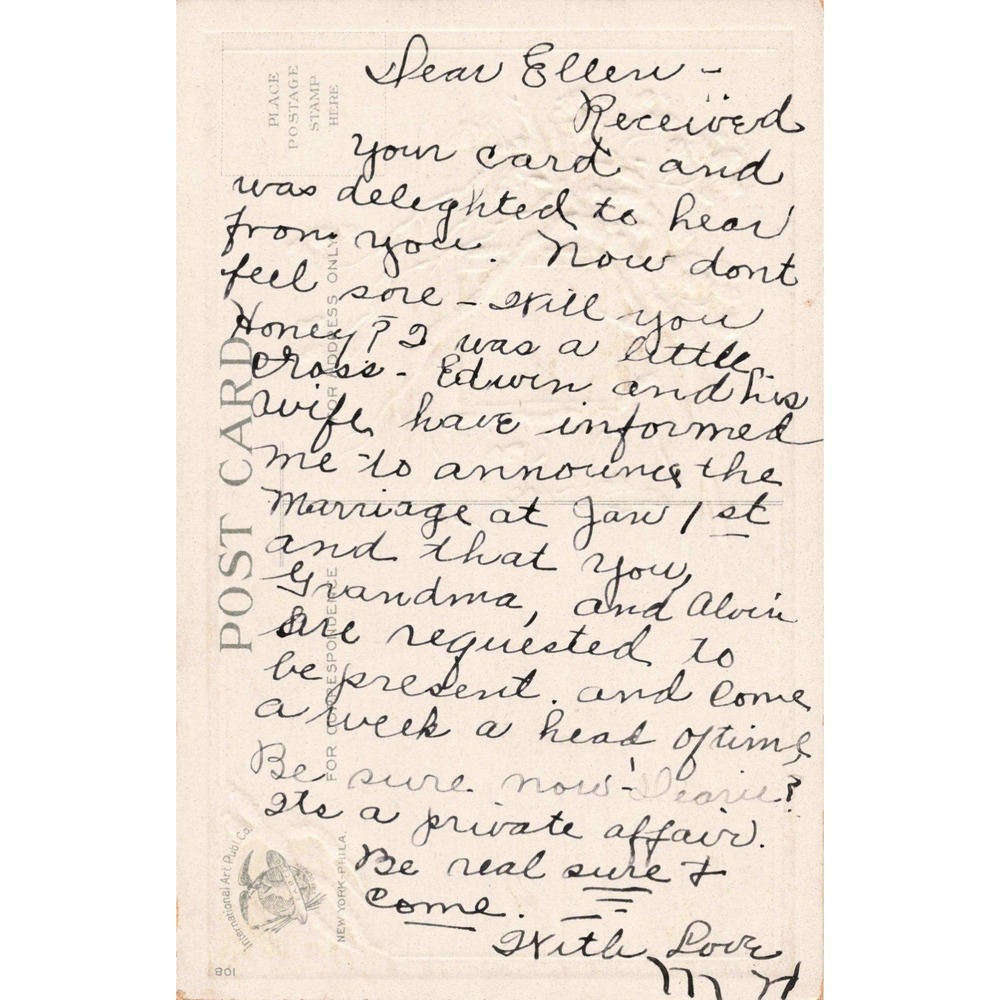 Dear Ellen -
Received
your card and
was deleghted to hear
from you. Now dont
feel sore - Will you
Honey? I was a little
cross - Edwin and his
wife have informed
me to announce the
Marriage at Jan 1 st
and that you,
Grandma, and Alvin
are requested to
be present. and come
a week a head of time
Be sure now - Dearie?
Its a private affair.
Be real sure &
come.
With Love
M H
PLACE
POSTAGE
STAMP
HERE
POST CARD
FOR CORRESPONDENCE
FOR ADDRESS ONLY
International Art Publ. Co.
NEW YORK-PHILA.
108